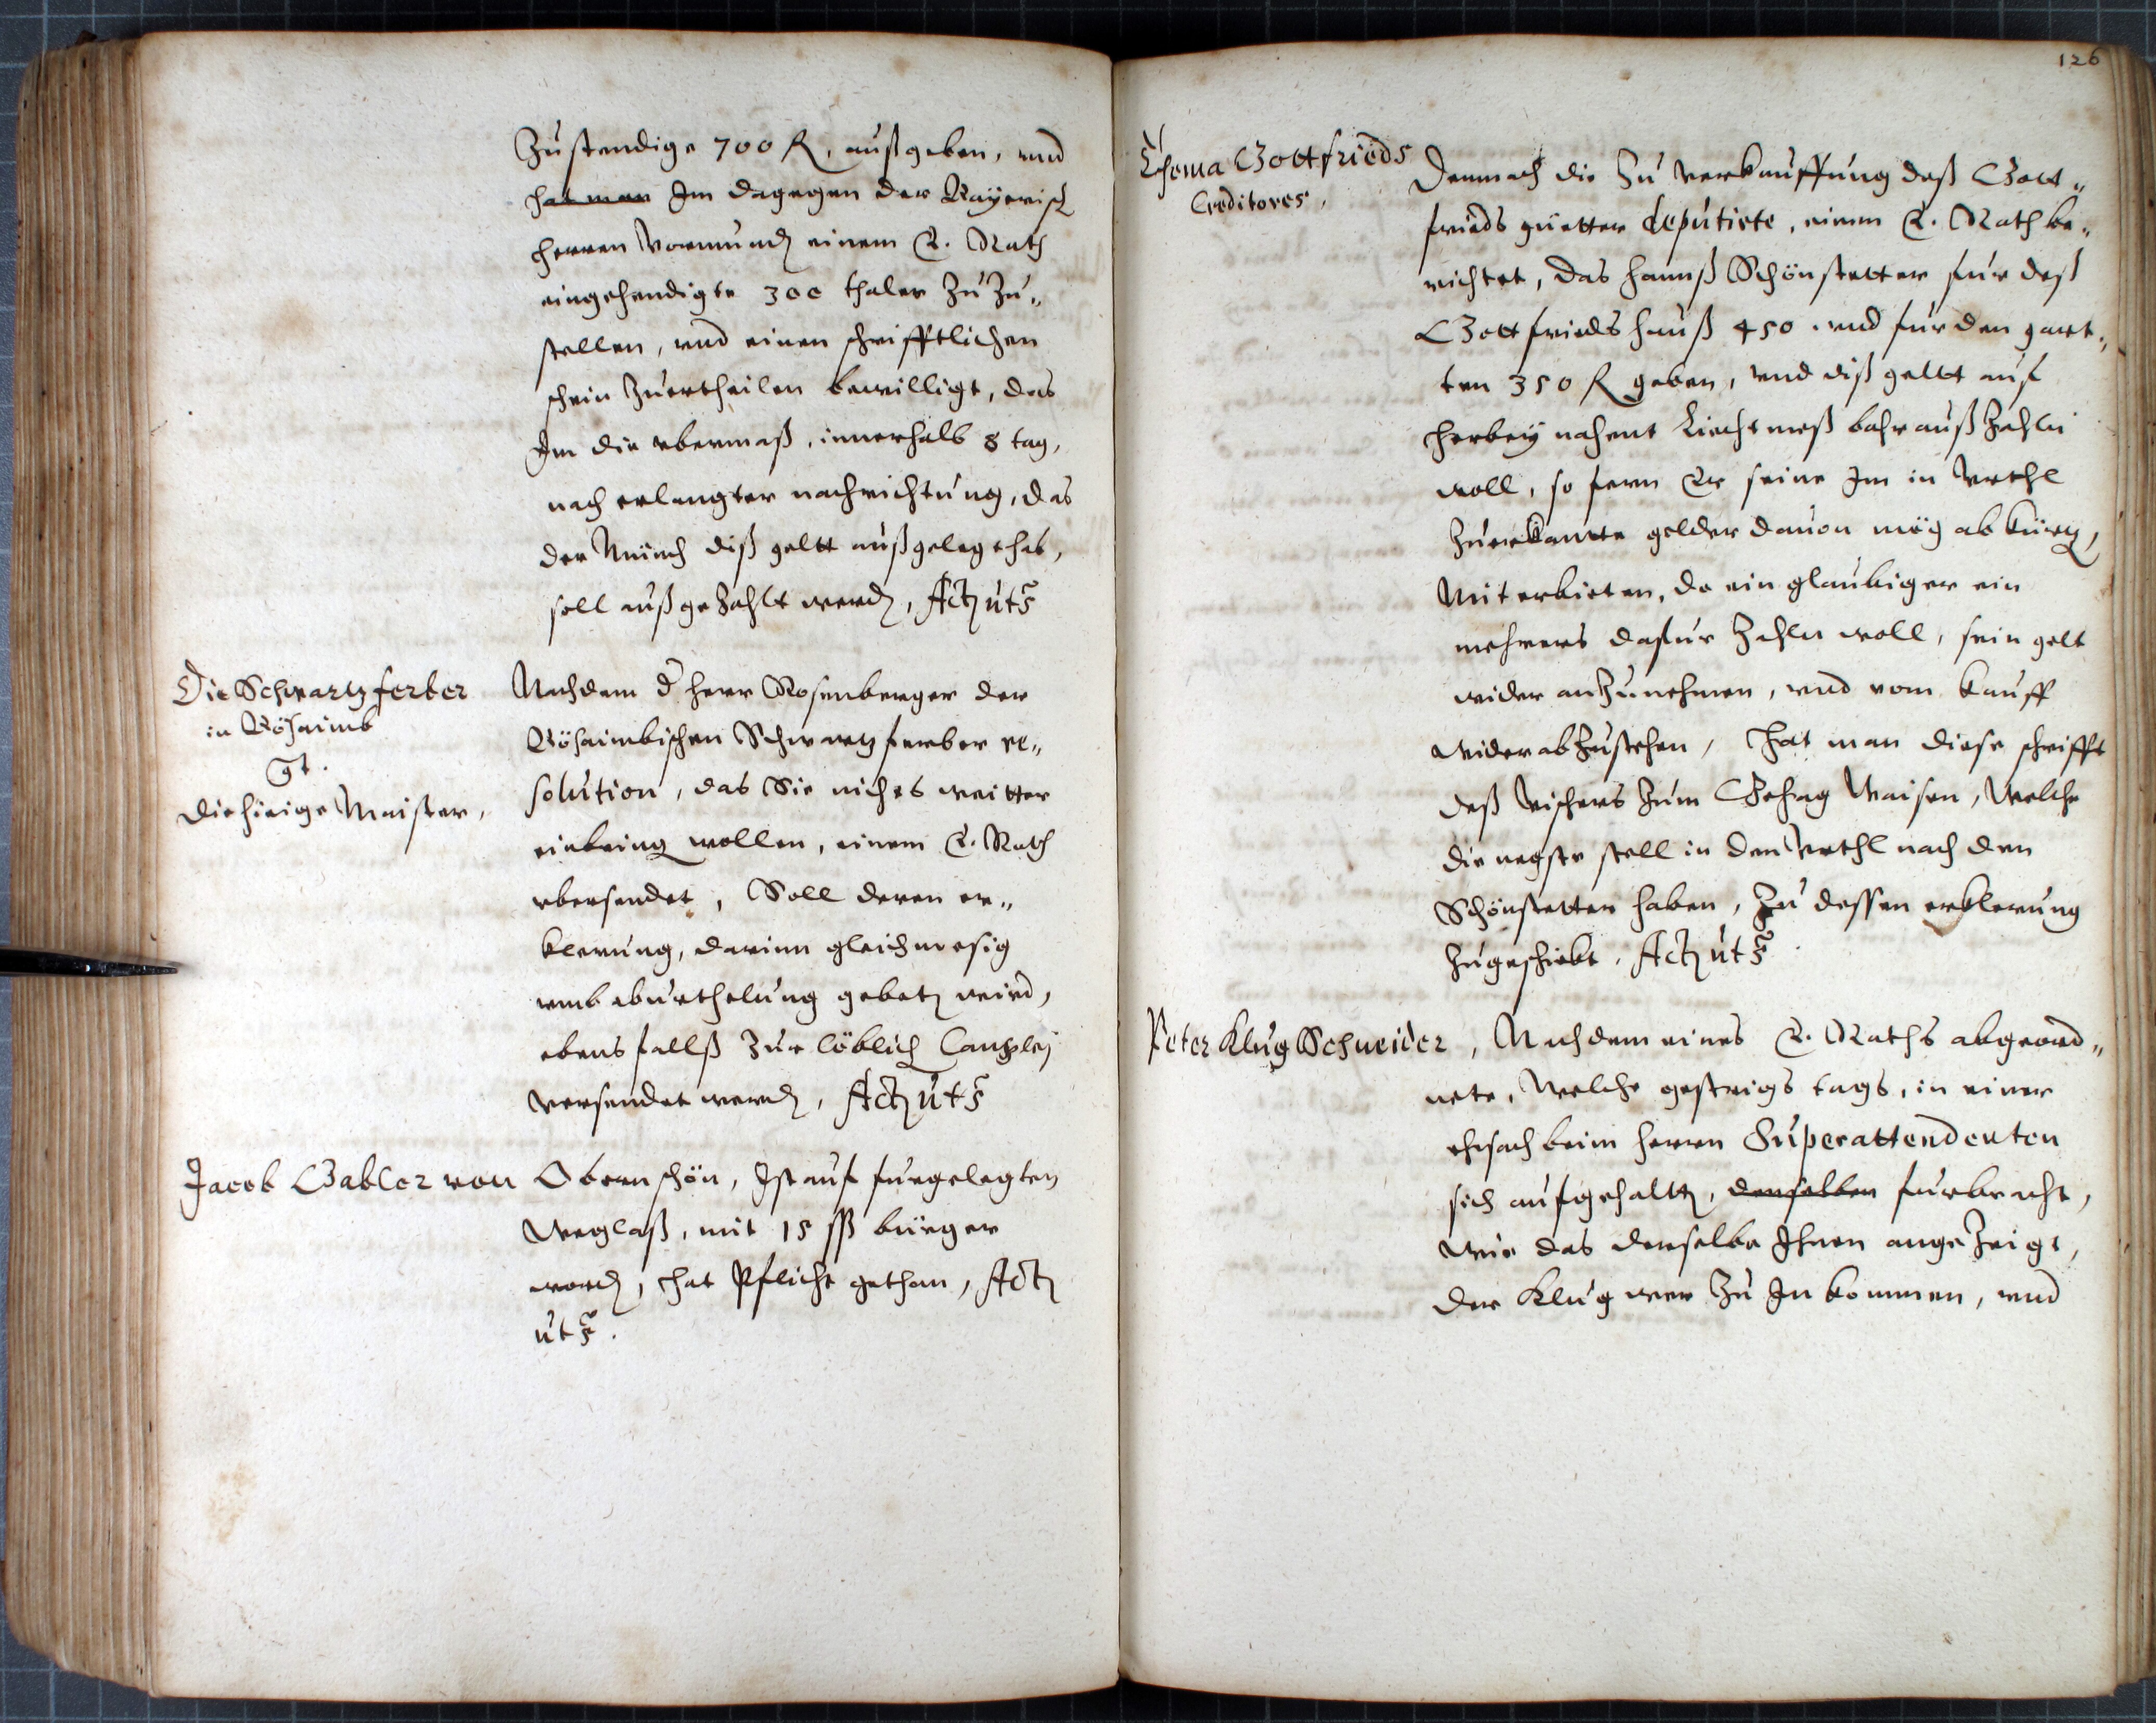 Zustendige 700 R, außgeben, vnd
hat man Im dagegen der Bayerisch
herren Vormund einem E. Rath
eingehendigte 300 thaler Zu Zu„
stellen, vnd einen schrifftlichen
schein Zuertheilen bewilligt, das
Im die vbermaß, innerhalb 8 tag,
nach erlangter nachrichtung, das
der Münch diß geltt außgelegt hab,
soll außgezahlt werden, Act ut s
Die Schwartzferber
in Böhaimb
gt.
die hieige Maister,
Nachdem d herr Rosenberger der
Böhaimbischen Schwartzferber re„
solution, das Sie nichts weitter
einbring wollen, einem E. Rath
vbersendet, Soll deren er„
klerung, darinn gleichmesig
vmb aburthelung gebeten wird,
ebens fallß Zur löblich Cantzley
versendet werden, Act ut s
Jacob Gabler von Obernschön, Ist auf furgelegten
Weglaß, mit 15 ß burger
worden, hat Pflicht gethan, Act
ut s.
126
Thoma Gottfrieds
Creditores,
Demnach die Zu Verkauffung deß Gott„
frieds güetter deputirte, einem E. Rath be„
richtet, das hannß Schönstetter fur deß
Gottfrieds hauß 450 vnd fur den gart„
ten 350 R geben, vnd diß geltt auf
herbey nahent Liechtmeß bahr außzahln
woll, so fern Er seine Im in Vrthl
Zuerkante gelder dauon mög abkürtzen,
Mit erbieten, da ein glaubiger ein
mehrers dafur Zahln woll, sein gelt
wider anzunehmen, vnd vom kauff
wider abzustehen, Hat man diese schrifft
deß Vischers Zum Gehag Waisen, Welche
die negste stell in den Vrthl nach dem
Schönstetter haben, Zu dessen erklerung
Zugeschickt. Act ut s.
Peter Klug Schneider, Nachdem eines E. Raths abgeord„
nete, Welche gestrigs tags, in einer
ehesach beim herrn Superattendenten
sich aufgehalten, denselben furbracht,
Wie das derselbe Ihnen angezeigt,
der Klug wer Zu Im kommen, vnd